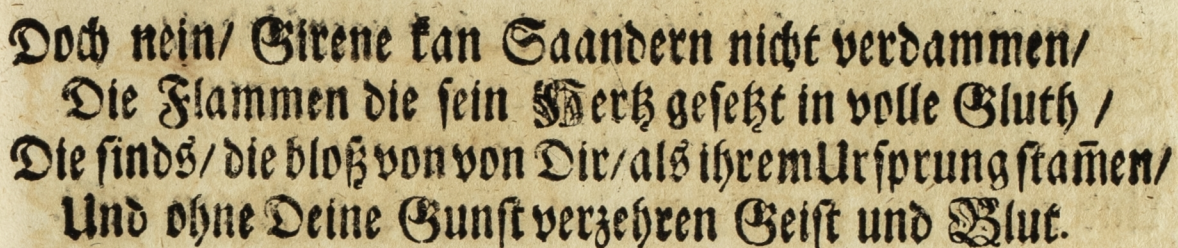 Doch nein/ Sirene kan Saandern nicht verdammen/
Die Flammen die sein Hertz gesetzt in volle Gluth /
Die sinds/ die bloß von von Dir/ als ihrem Ursprung stam̃en/
Und ohne Deine Gunst verzehren Geist und Blut.